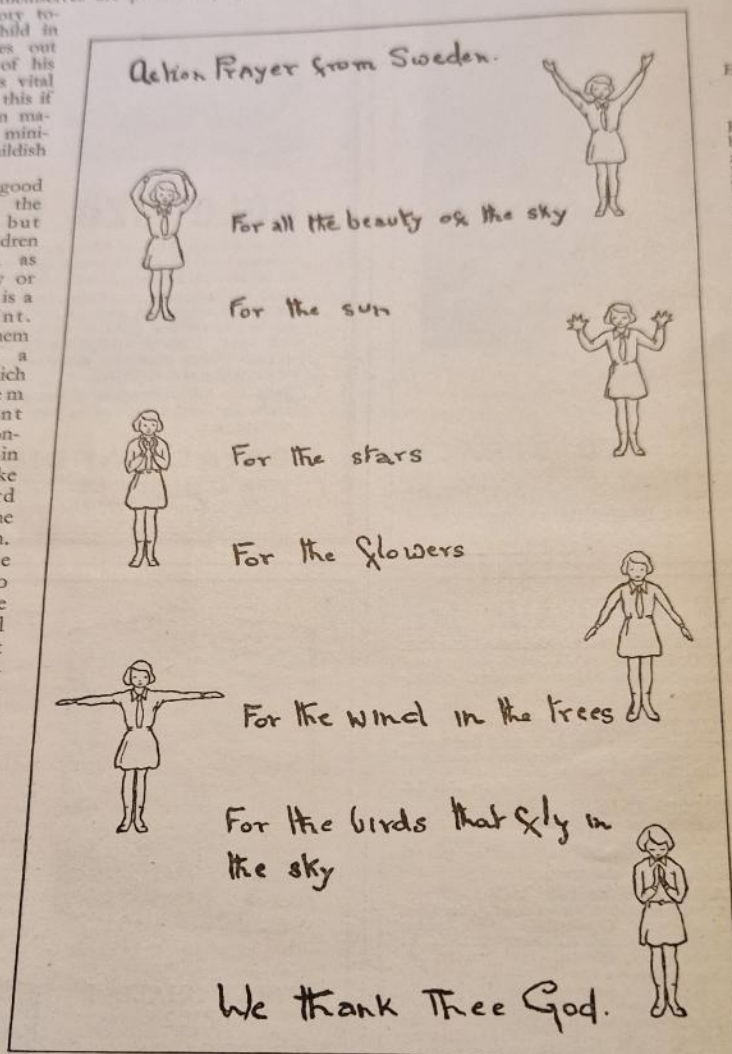 ory to-
hild in
es out
of his
s vital
this if
n ma-
mini-
ildish
good
the
but
dren
as
y or
is a
nt.
nem
a
ich
em
nt
on-
in
ke
rd
ne
n.
e
o
e
l
t
Action Prayer from Sweden.
For all the beauty of the sky
For the sun
For the stars
For the flowers
For the wind in the trees
For the birds that fly in
the sky
We thank Thee God.